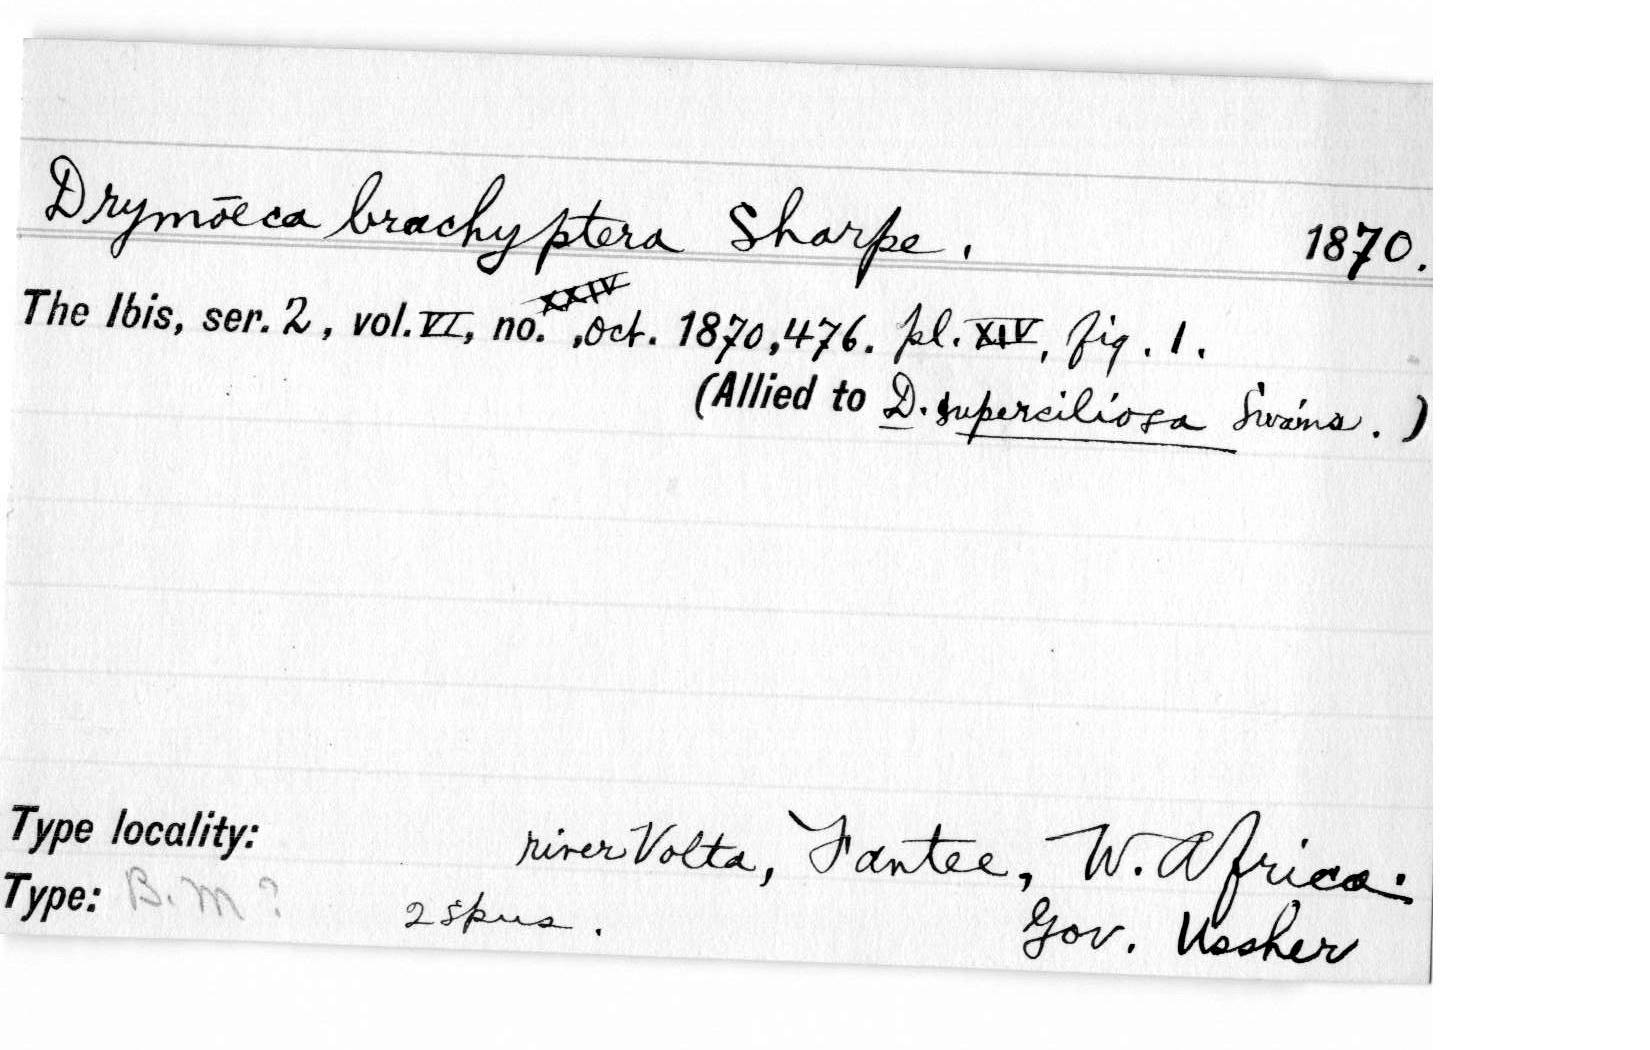 Drymōeca brachyptera Sharpe. 1870.
The Ibis, ser. 2, vol. VI, no. XXIV, Oct. 1870, 476. pl. XIV, fig. 1.
(Allied to D. superciliosa Swains.)
Type locality: river Volta, Fantee, W. Africa.
Type: B.M? 2 spns. Gov. Ussher